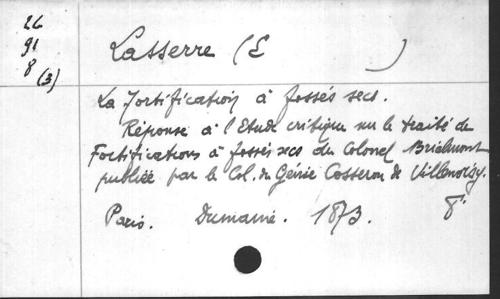 26
91
8 (3)
Lasserre (E )
La Fortification à fossés secs.
Réponse à l'Etude critique sur le traité de
Fortifications à fossés secs du Colonel Brialmont
publiée par le Col. du Génie Cosseron de Villenoisy.
Paris. Dumaine. 1873. 8°